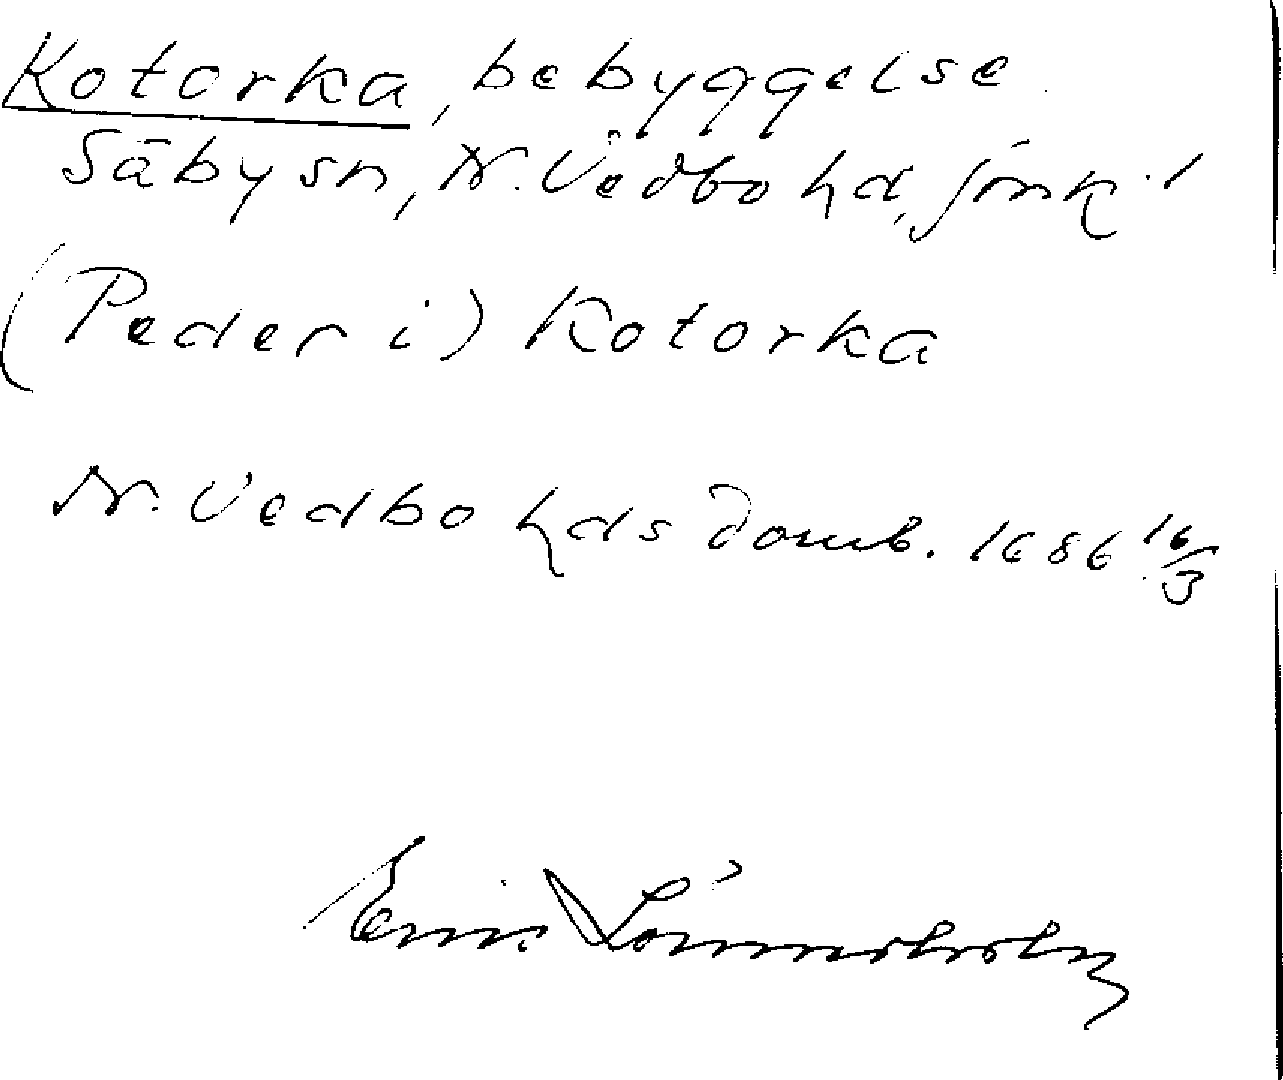 Kotorka, bebyggelse
Säby sn, N. Vedbo hd, Jönk. l
(Peder i) Kotorka
N. Vedbo hds domb. 1686 16/3